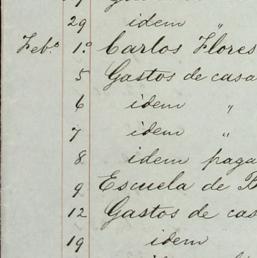 29 idem "
Feb.º 1.º Carlos Flores
5 Gastos de casa
6 idem "
7 idem "
8 idem paga
9 Escuela de B
12 Gastos de cas
19 idem